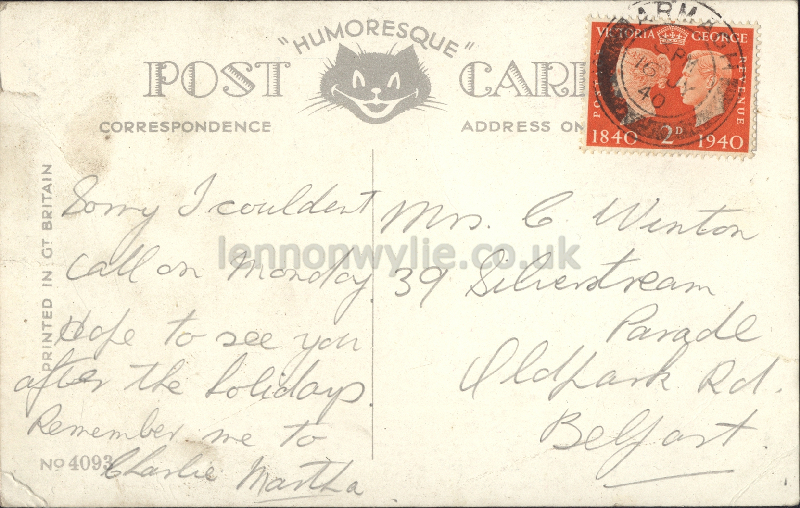 "HUMORESQUE"
POST CARD
CORRESPONDENCE
ADDRESS ON
VICTORIA GEORGE
REVENUE
1840 2D 1940
15 JL
40
PRINTED IN GT BRITAIN
Sorry I couldent
call on Monday
Hope to see you
after the holidays
Remember me to
Charlie Martha
No 4093
Mrs. C. Winton
39 Silverstream
Parade
Oldpark Rd.
Belfast.
lennonwylie.co.uk